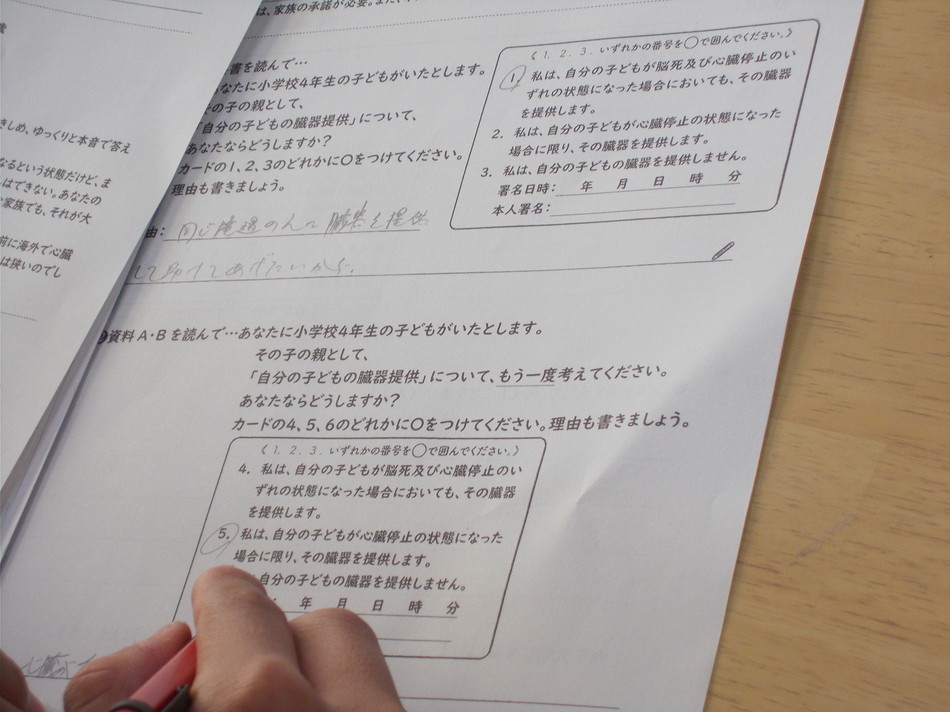 は、家族の承諾が必要。また、
書を読んで…
なたに小学校4年生の子どもがいたとします。
の子の親として、
「自分の子どもの臓器提供」について、
あなたならどうしますか?
カードの1、2、3のどれかに○をつけてください。
理由も書きましょう。
《1. 2. 3. いずれかの番号を○で囲んでください。》
1. 私は、自分の子どもが脳死及び心臓停止のい
ずれの状態になった場合においても、その臓器
を提供します。
2. 私は、自分の子どもが心臓停止の状態になった
場合に限り、その臓器を提供します。
3. 私は、自分の子どもの臓器を提供しません。
署名日時: 年 月 日 時 分
本人署名:
由: 同じ境遇の人に臓器を提供
して助けてあげたいから。
きしめ、ゆっくりと本音で答え
なるという状態だけど、ま
はできない。あなたの
家族でも、それが大
前に海外で心臓
は狭いのでし
資料A・Bを読んで…あなたに小学校4年生の子どもがいたとします。
その子の親として、
「自分の子どもの臓器提供」について、もう一度考えてください。
あなたならどうしますか?
カードの4、5、6のどれかに○をつけてください。理由も書きましょう。
《1. 2. 3. いずれかの番号を○で囲んでください。》
4. 私は、自分の子どもが脳死及び心臓停止のい
ずれの状態になった場合においても、その臓器
を提供します。
5. 私は、自分の子どもが心臓停止の状態になった
場合に限り、その臓器を提供します。
自分の子どもの臓器を提供しません。
年 月 日 時 分